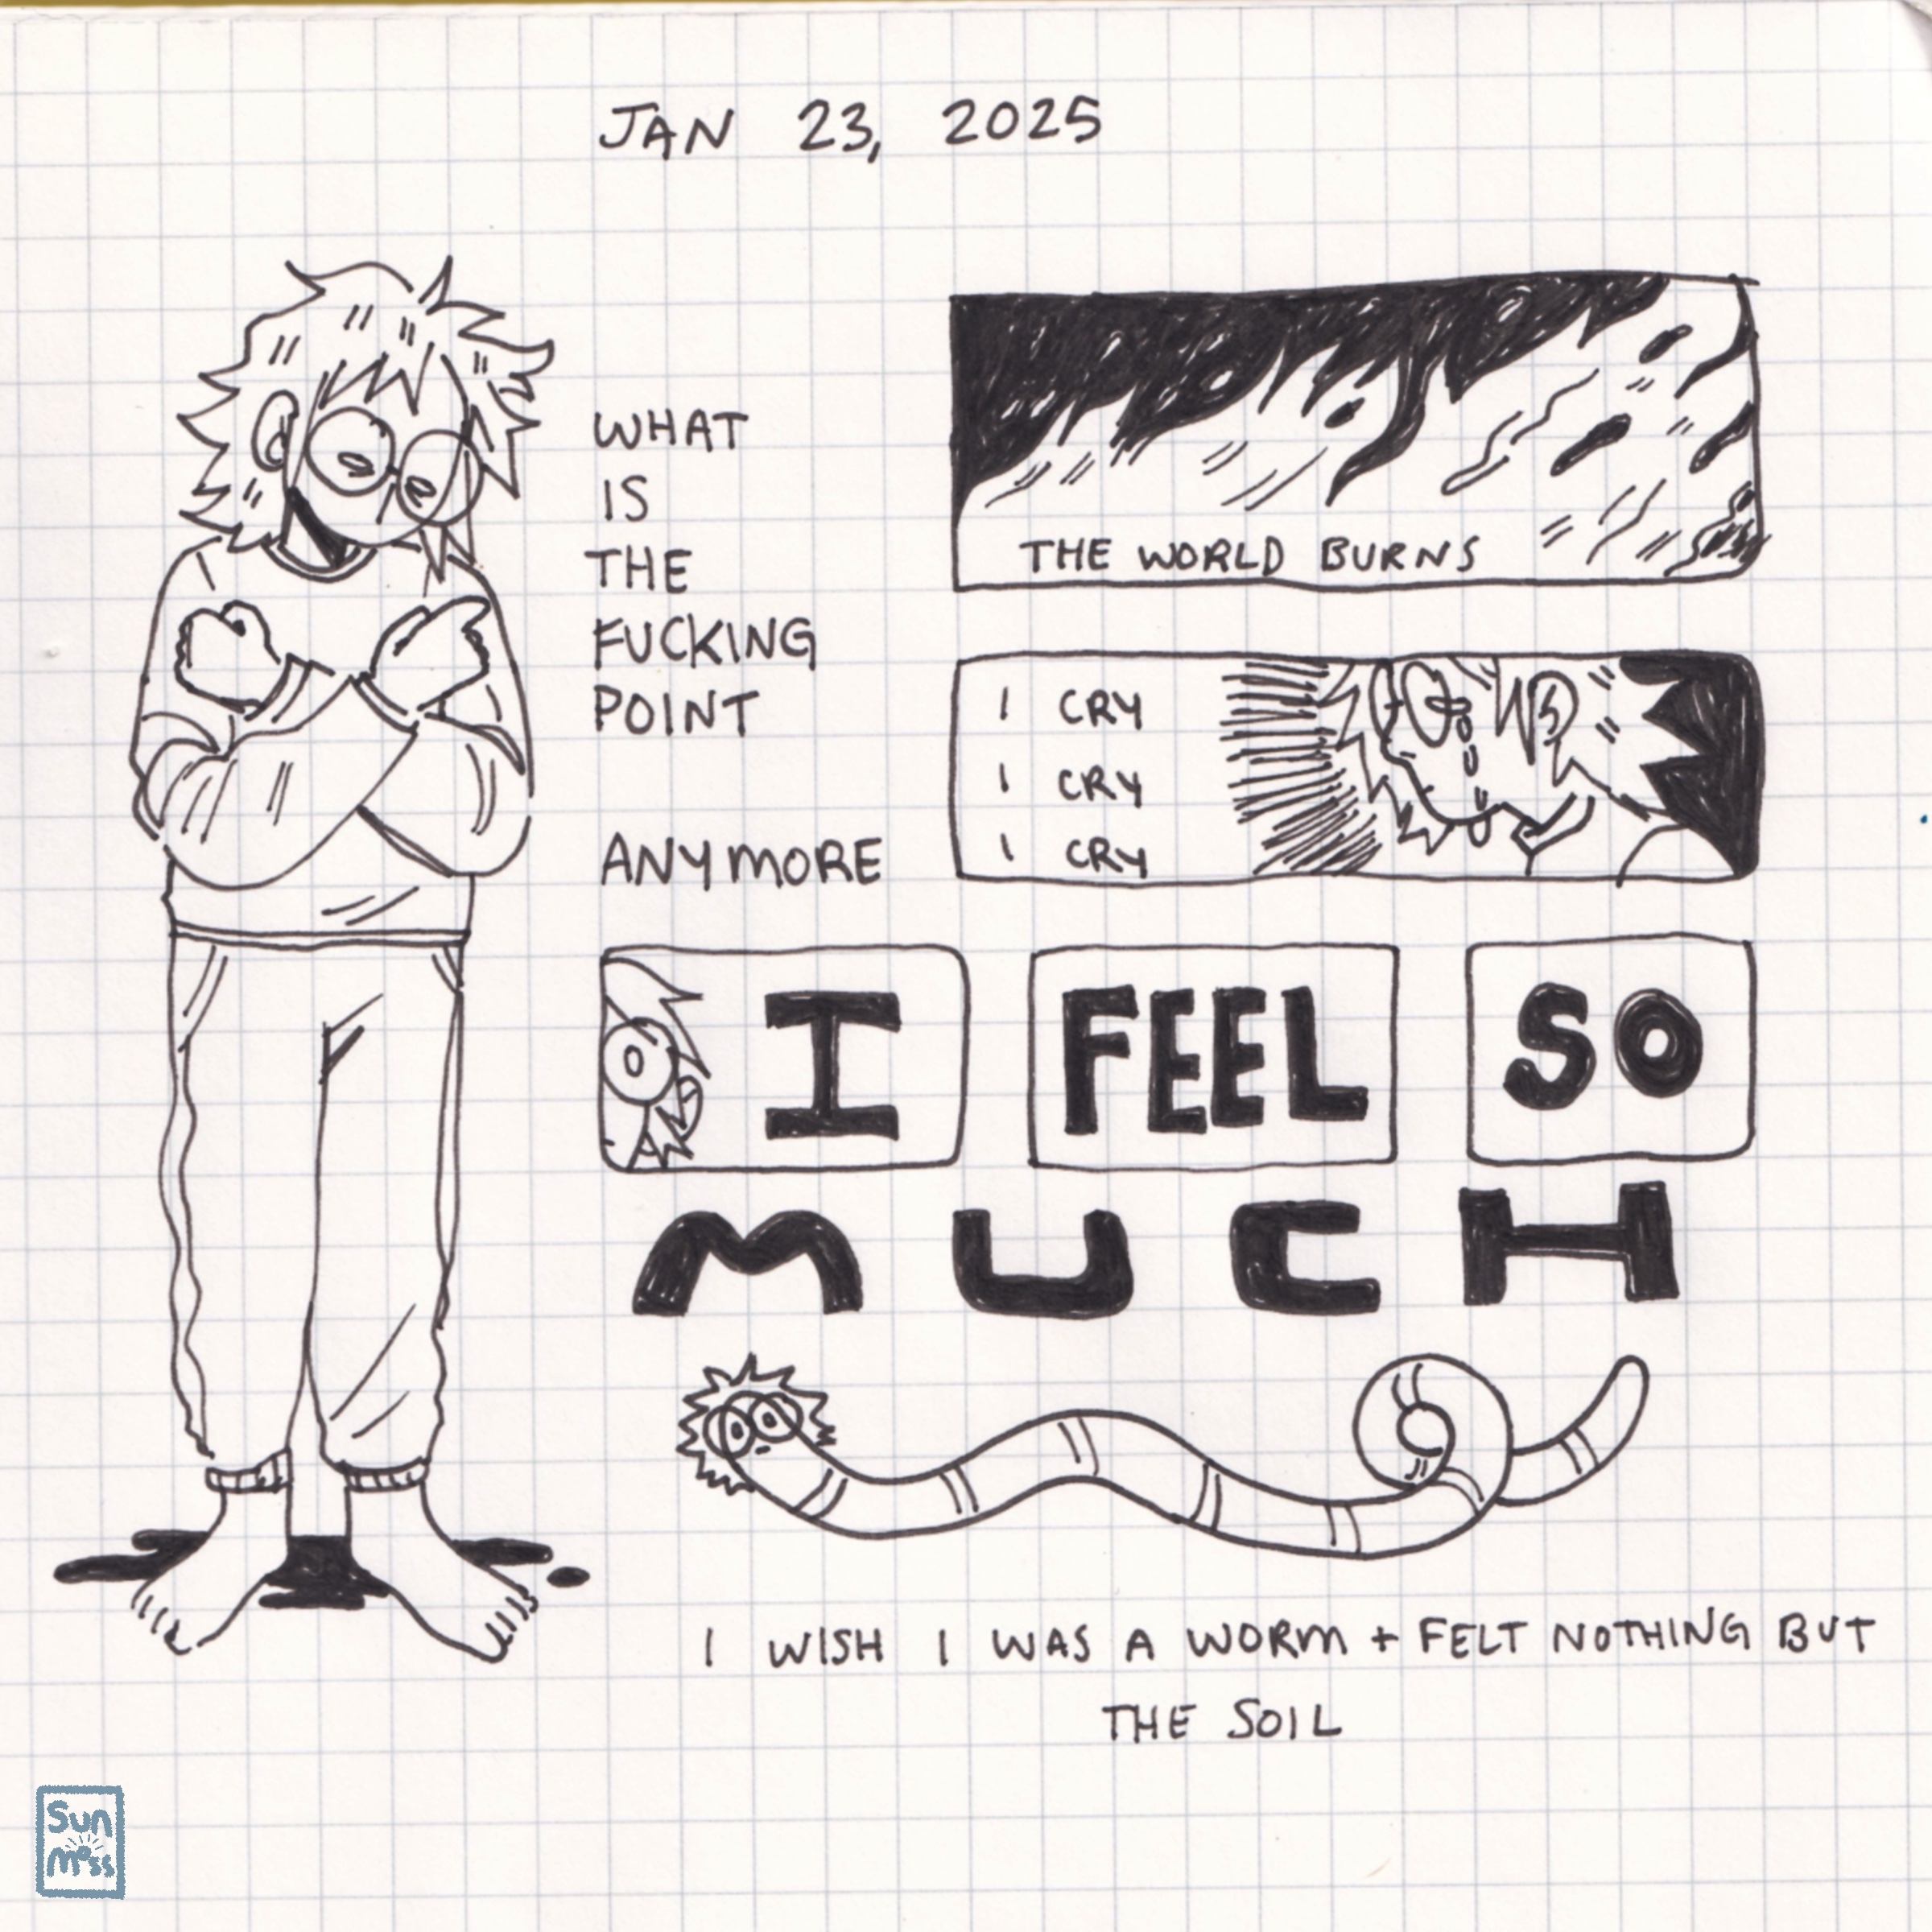 JAN 23, 2025
WHAT
IS
THE
FUCKING
POINT
ANYMORE
THE WORLD BURNS
I CRY
I CRY
I CRY
I
FEEL
SO
MUCH
I WISH I WAS A WORM + FELT NOTHING BUT
THE SOIL
Sun
Moss